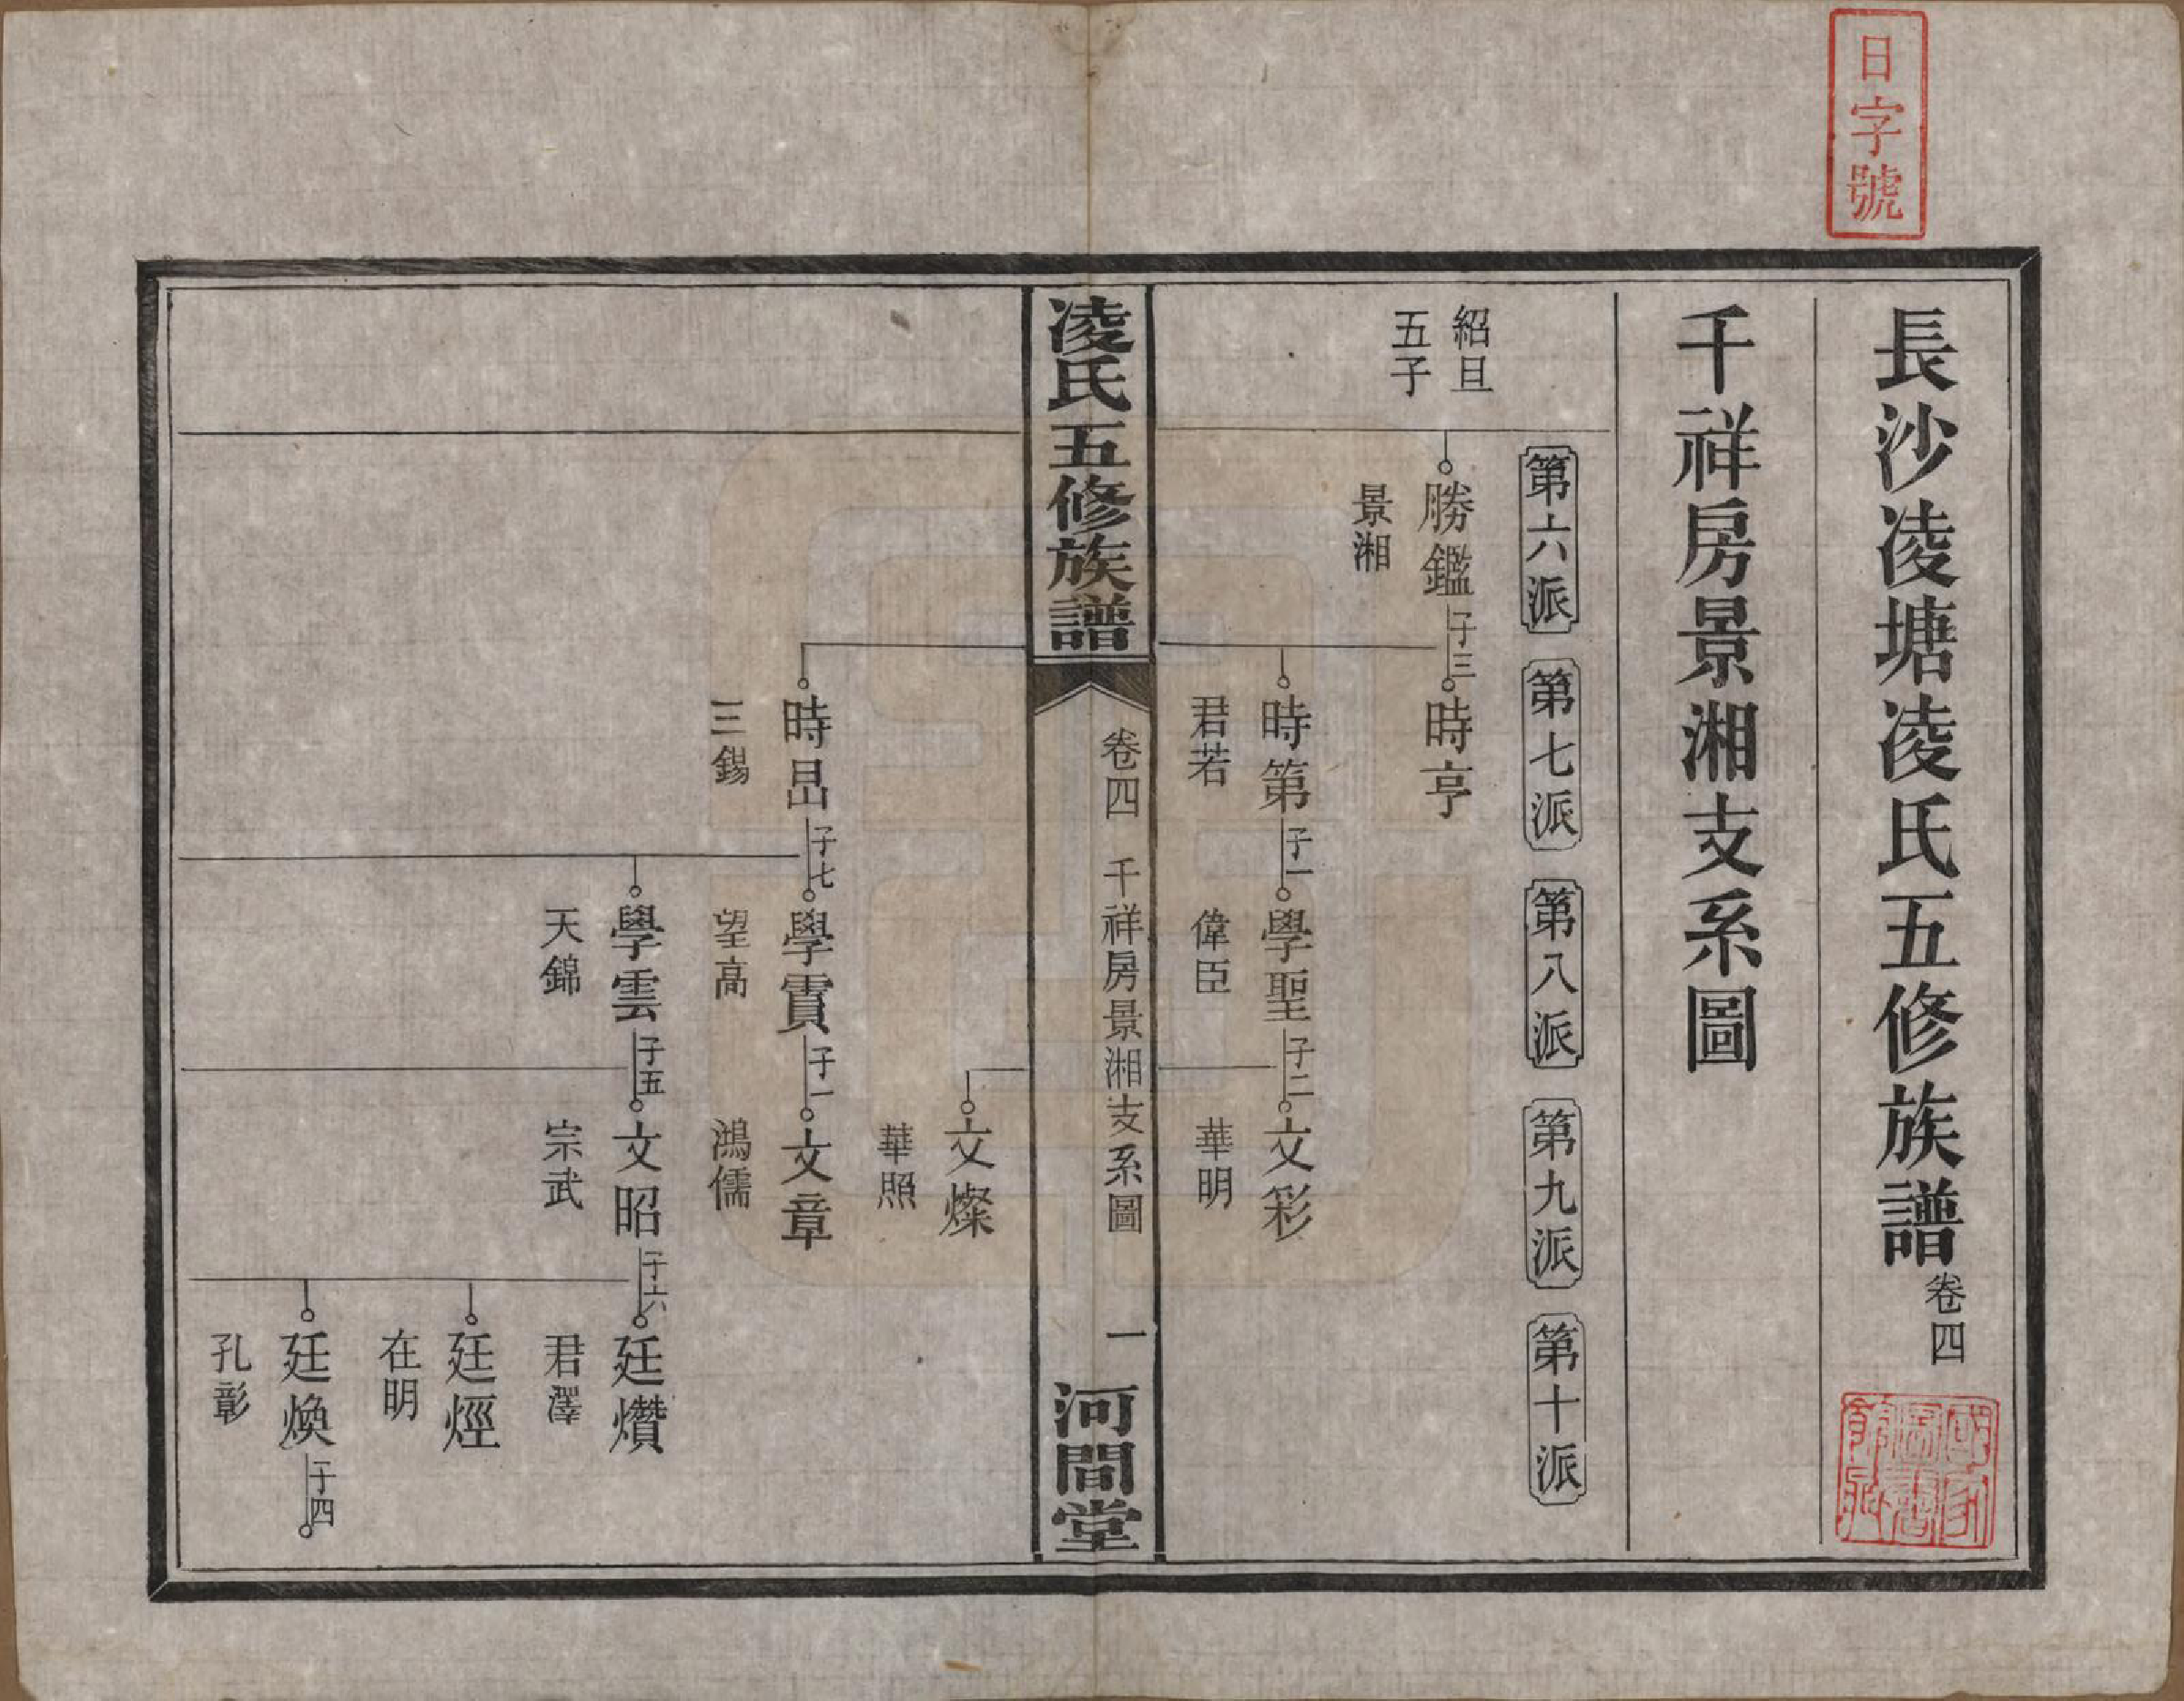 日字號
長沙凌塘凌氏五修族譜卷四
千祥房景湘支系圖
第六派
第七派
第八派
第九派
第十派
紹旦
五子
勝鑑子三
景湘
時亨
時第子一
君若
學聖子二
偉臣
文彩
華明
凌氏五修族譜
卷四 千祥房景湘支系圖
一
河間堂
文燦
華照
時昷子七
三錫
學賓子一
望高
文章
鴻儒
學雲子五
天錦
文昭子六
宗武
廷燦
君澤
廷烴
在明
廷煥子四
孔彰